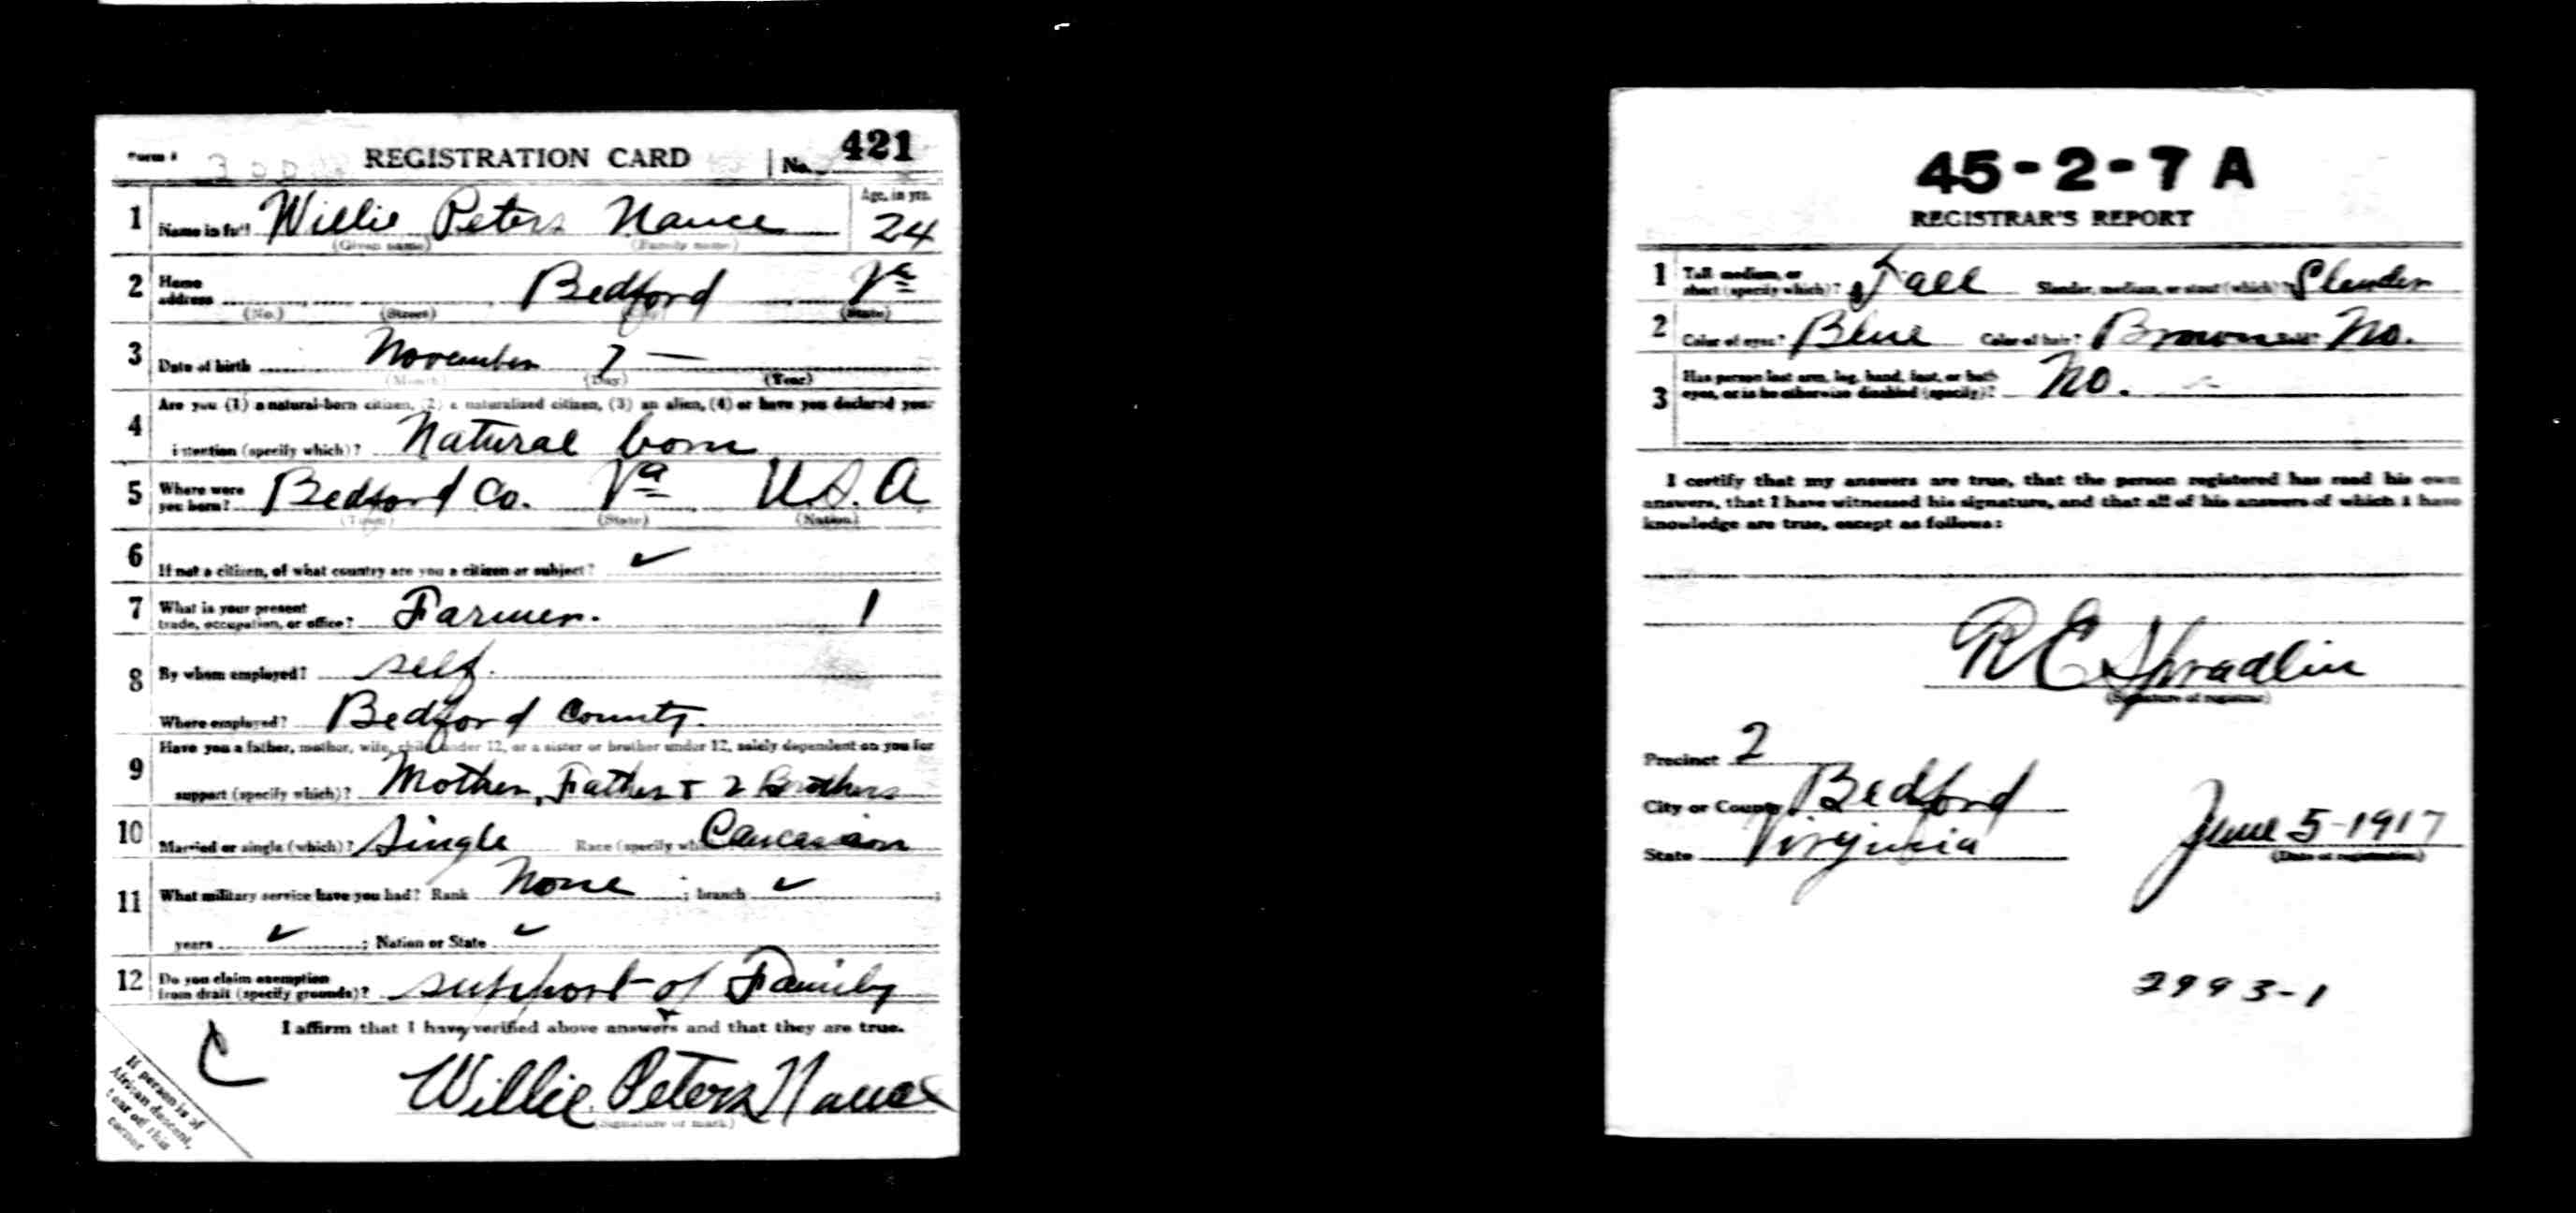 Form 1 REGISTRATION CARD No. 421
1 Name in full Willie Peters Nance Age, in yrs. 24
(Given name) (Family name)
2 Home address Bedford Va
(No.) (Street) (State)
3 Date of birth November 7 —
(Month) (Day) (Year)
4 Are you (1) a natural-born citizen, (2) a naturalized citizen, (3) an alien, (4) or have you declared your
intention (specify which)? Natural born
5 Where were you born? Bedford Co. Va U.S.A
(Town) (State) (Nation)
6 If not a citizen, of what country are you a citizen or subject? ✓
7 What is your present trade, occupation, or office? Farmer. 1
8 By whom employed? self.
Where employed? Bedford County.
9 Have you a father, mother, wife, child under 12, or a sister or brother under 12, solely dependent on you for
support (specify which)? Mother, Father + 2 Brothers
10 Married or single (which)? Single Race (specify which) Caucasian
11 What military service have you had? Rank None ; branch ✓ ;
years ✓ ; Nation or State ✓
12 Do you claim exemption from draft (specify grounds)? support of Family
I affirm that I have verified above answers and that they are true.
C
Willie Peters Nance
(Signature or mark)
If person is of
African descent,
tear off this
corner
45-2-7 A
REGISTRAR'S REPORT
1 Tall, medium, or short (specify which)? Tall Slender, medium, or stout (which)? Slender
2 Color of eyes? Blue Color of hair? Brown No.
3 Has person lost arm, leg, hand, foot, or both eyes, or is he otherwise disabled (specify)? No.
I certify that my answers are true, that the person registered has read his own
answers, that I have witnessed his signature, and that all of his answers of which I have
knowledge are true, except as follows:
R E Spradlin
(Signature of registrar)
Precinct 2
City or County Bedford
State Virginia June 5-1917
(Date of registration)
2993-1